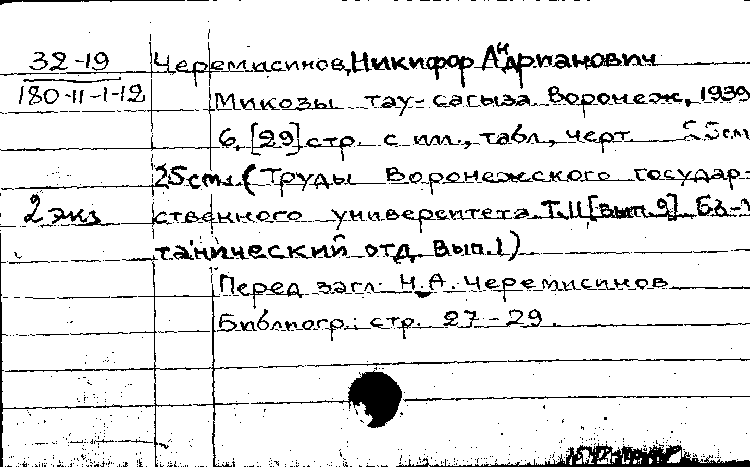 32-19
180-11-1-12
2 экз
Черемисинов, Никифор Андрианович
Микозы тау-сагыза. Воронеж, 1939
6, [29] стр. с илл., табл., черт.
25см. (Труды Воронежского государ-
ственного университета. Т.11 [вып.9]. Бо-
танический отд. Вып.1)
Перед загл.: Н.А. Черемисинов
Библиогр.: стр. 27-29.